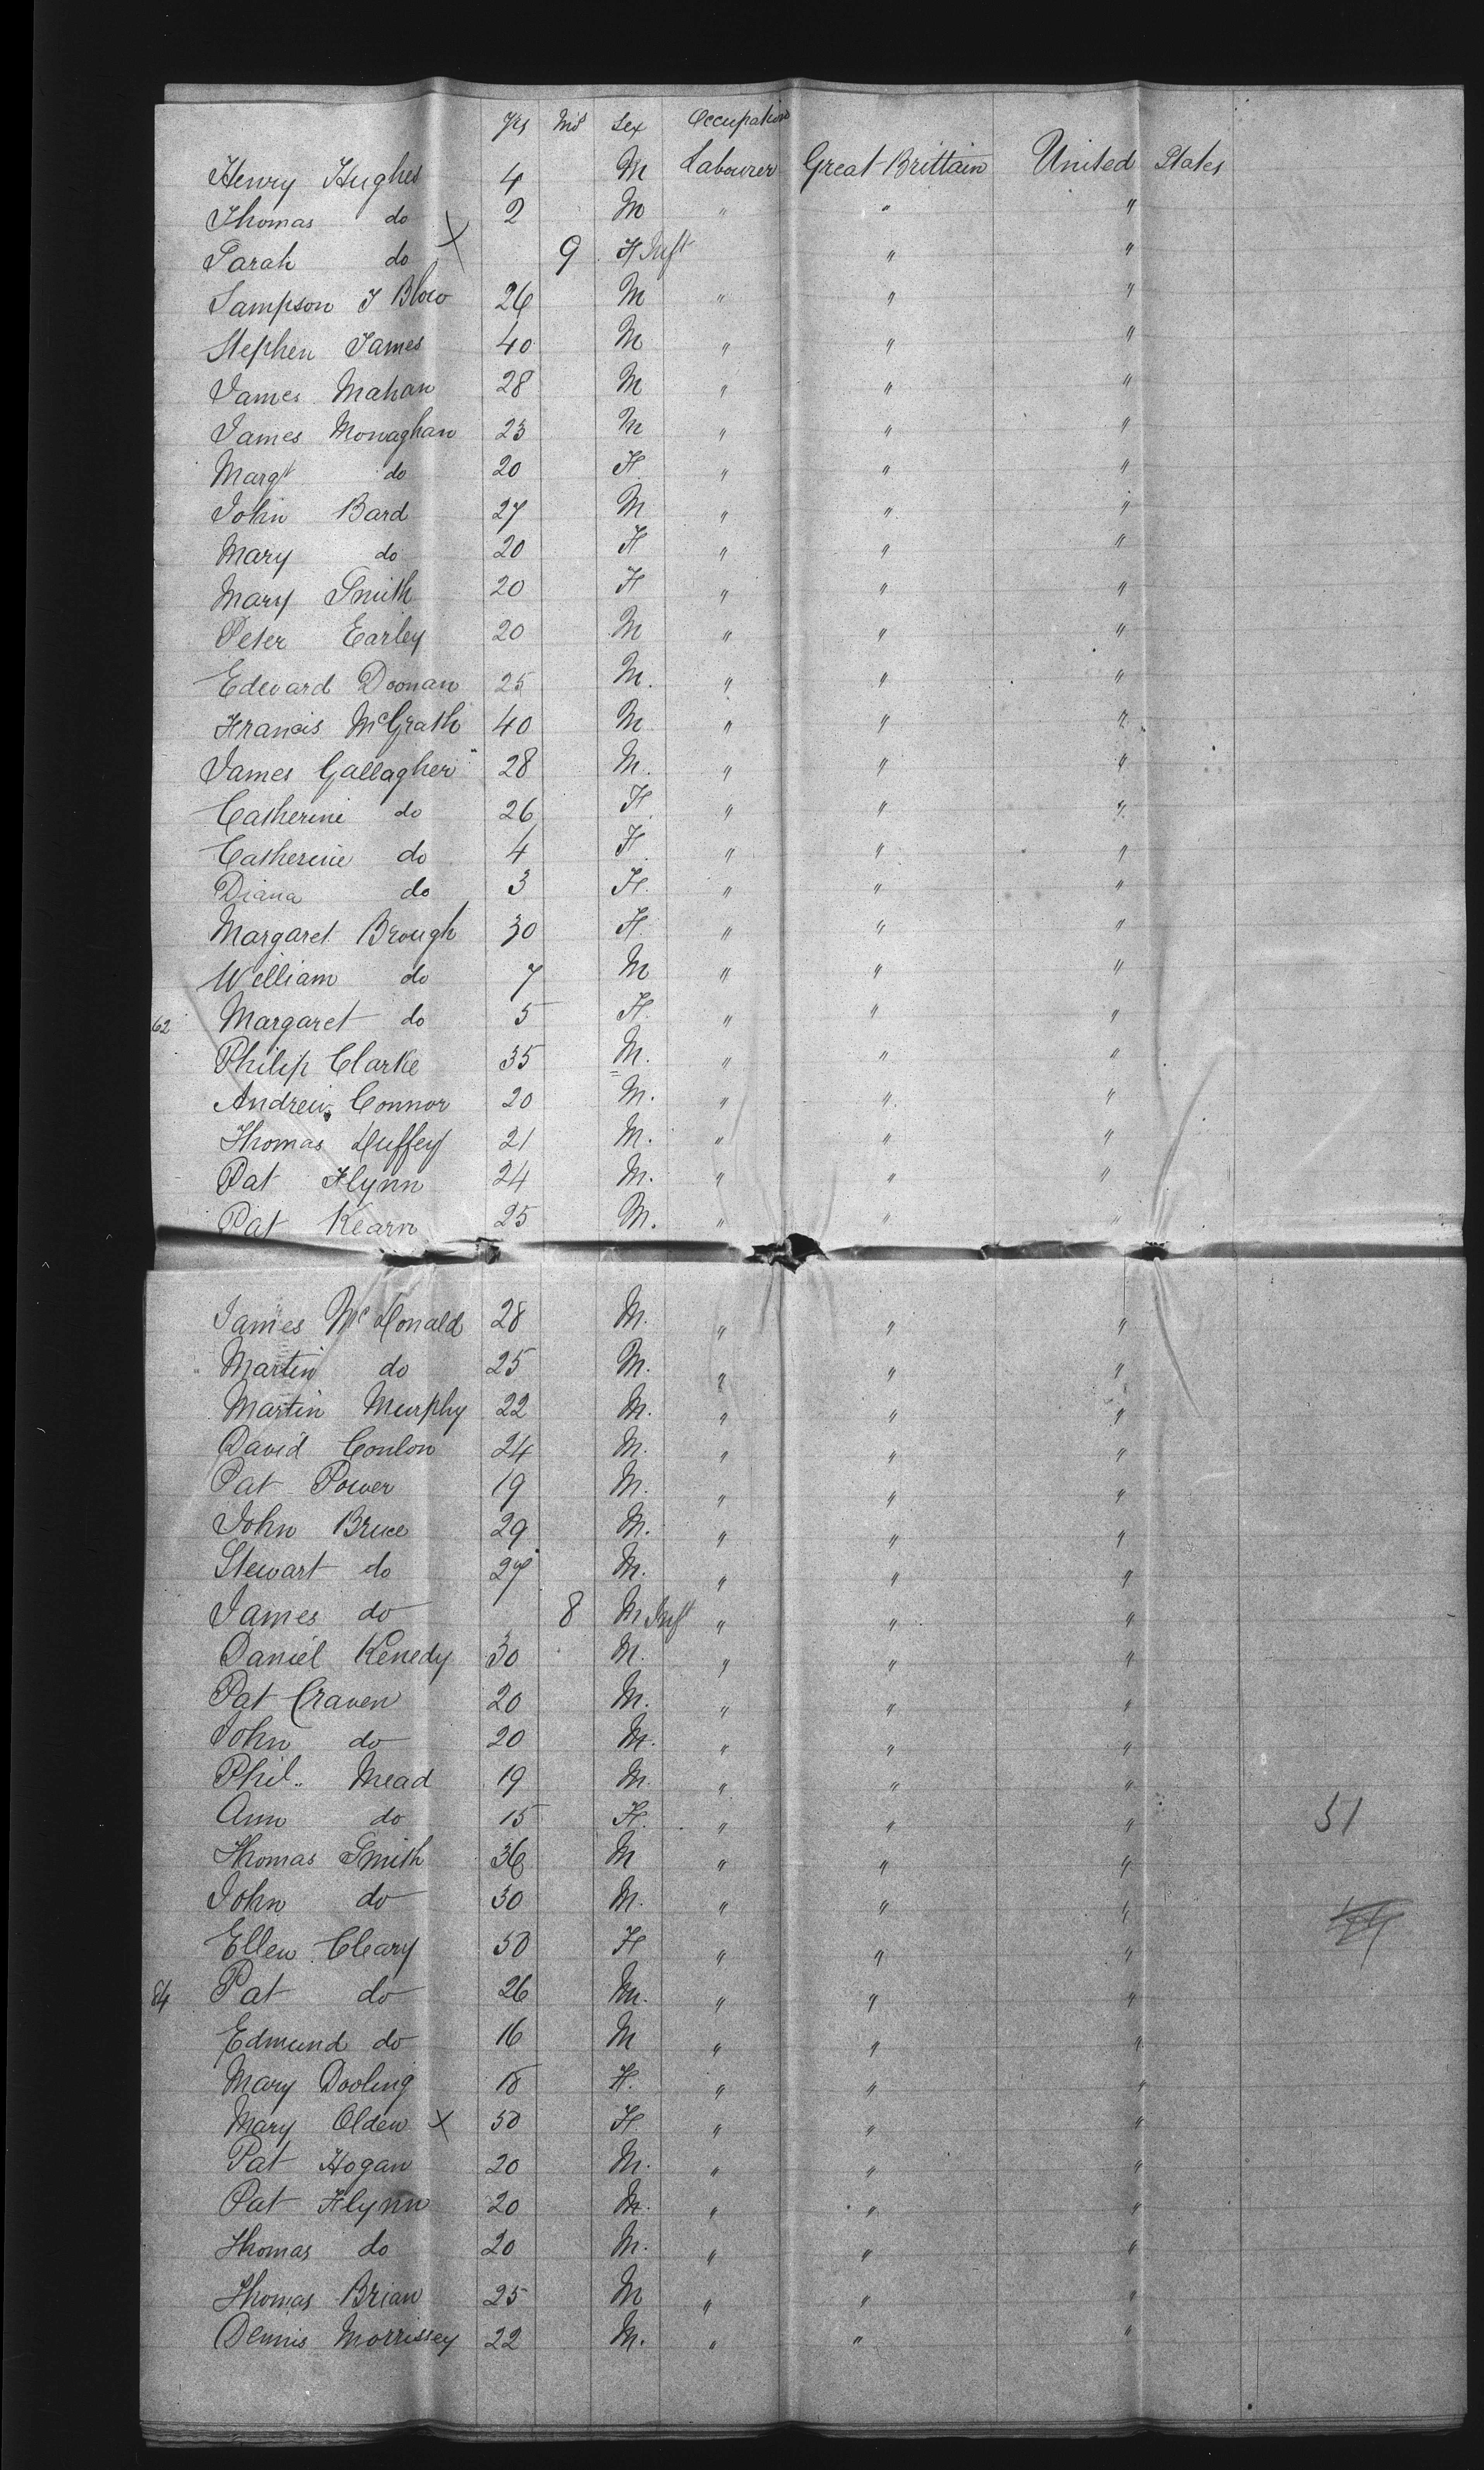 Yrs Mos Sex Occupation
Henry Hughes 4 M Labourer Great Brittain United States
Thomas do 2 M " " "
Sarah do X 9 F Inft " "
Sampson J Blow 26 M " " "
Stephen James 40 M " " "
James Mahan 28 M " " "
James Monaghan 23 M " " "
Margt do 20 F " " "
John Bard 27 M " " "
Mary do 20 F " " "
Mary Smith 20 F " " "
Peter Earley 20 M " " "
Edward Doonan 25 M. " " "
Francis McGrath 40 M " " "
James Gallagher 28 M. " " "
Catherine do 26 F. " " "
Catherine do 4 F. " " "
Diana do 3 F. " " "
Margaret Brough 30 F. " " "
William do 7 M " " "
62 Margaret do 5 F. " " "
Philip Clarke 35 M. " " "
Andrew Connor 20 M. " " "
Thomas Duffey 21 M. " " "
Pat Flynn 24 M. " " "
Pat Kearn 25 M. " " "
James McDonald 28 M. " " "
Martin do 25 M. " " "
Martin Murphy 22 M. " " "
David Conlon 24 M. " " "
Pat Power 19 M. " " "
John Bruce 29 M. " " "
Stewart do 27 M. " " "
James do 8 M Inft " " "
Daniel Kenedy 30 M. " " "
Pat Craven 20 M. " " "
John do 20 M. " " "
Phil.. Mead 19 M. " " "
Ann do 15 F. " " " 51
Thomas Smith 36 M " " "
John do 30 M. " " "
Ellen Cleary 50 F " " "
84 Pat do 26 M. " " "
Edmund do 16 M " " "
Mary Dooling 18 F. " " "
Mary Olden X 50 F. " " "
Pat Hogan 20 M. " " "
Pat Flynn 20 M. " " "
Thomas do 20 M. " " "
Thomas Brian 25 M " " "
Dennis Morrissey 22 M. " " "